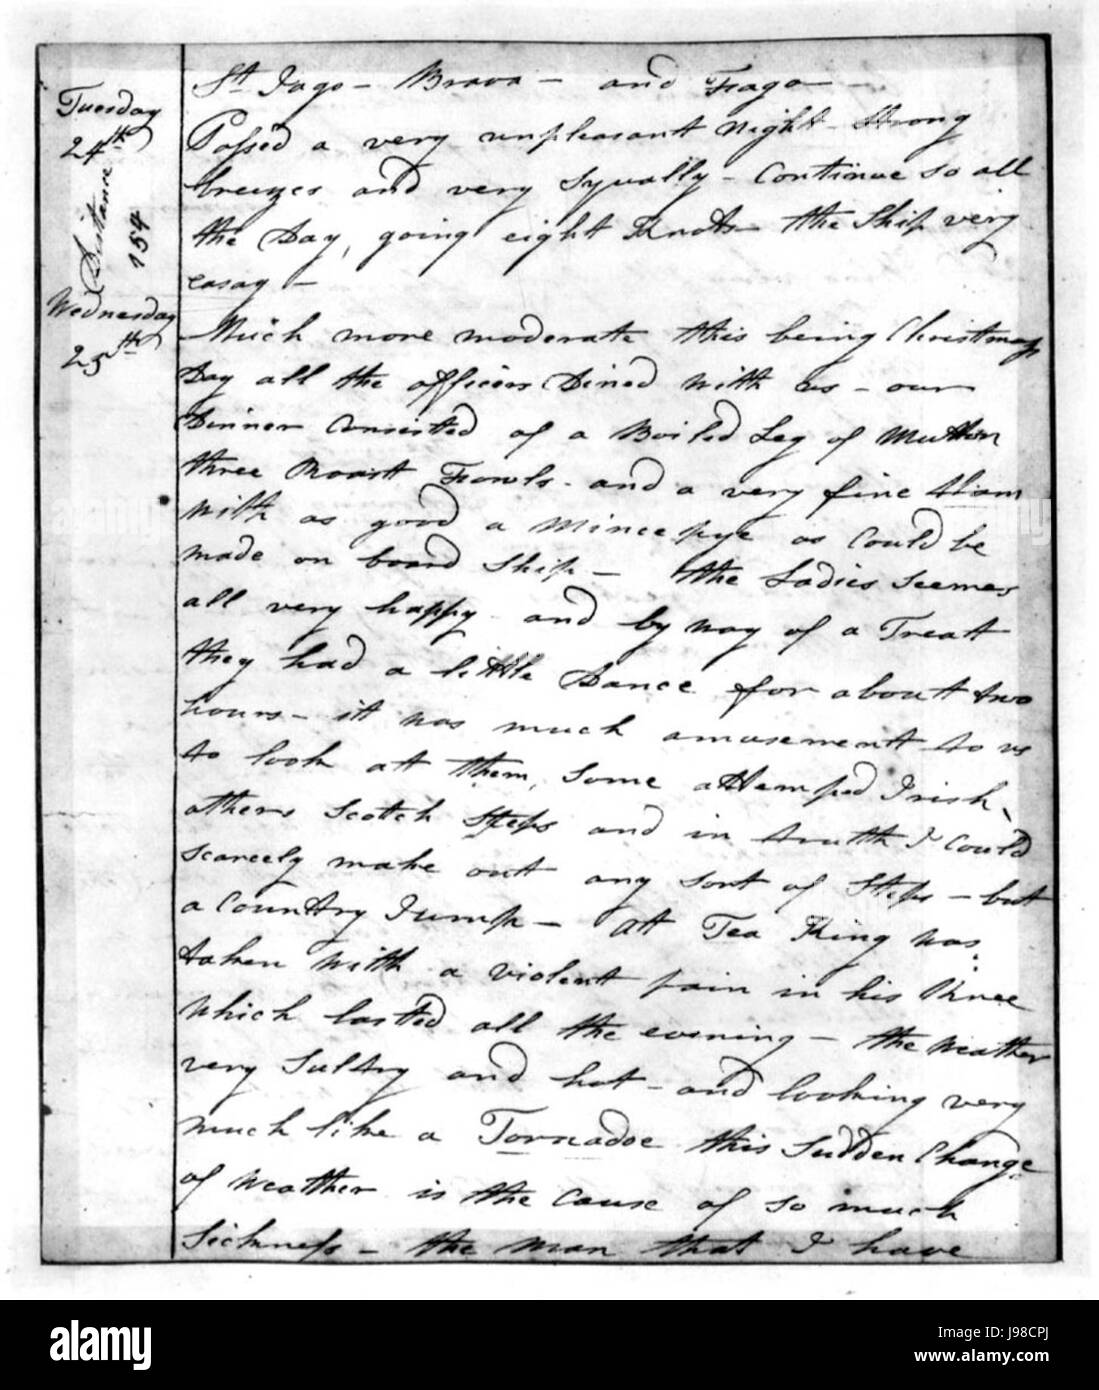 St. Jago - Brava - and Fuago -
Tuesday
24th
Distance
154
Passed a very unpleasant Night Strong
breezes and very Squally - Continue so all
the Day, going eight Knots the Ship very
easay -
Wednesday
25th
Much more moderate this being Christmas
Day all the officers Dined with us - our
Dinner Consisted of a Boiled Leg of Mutton
three Roast Fowls - and a very fine Ham
With as good a Mince pye as Could be
made on board Ship - the Ladies Seemes
all very happy and by way of a Treat
they had a little Dance for about two
hours - it was much amusement to us
to look at them, Some attemped Irish,
others Scotch Steps and in truth I Could
scarcely make out any sort of Steps - but
a Country Jump - att Tea King was
taken with a violent pain in his Knee
Which lasted all the evening - the Weather
very Sultry and hot - and looking very
much like a Tornadoe this Sudden Change
of Weather is the Cause of so much
Sickness - the Man that I have
alamy
alamy
Image ID: J98CPJ
www.alamy.com